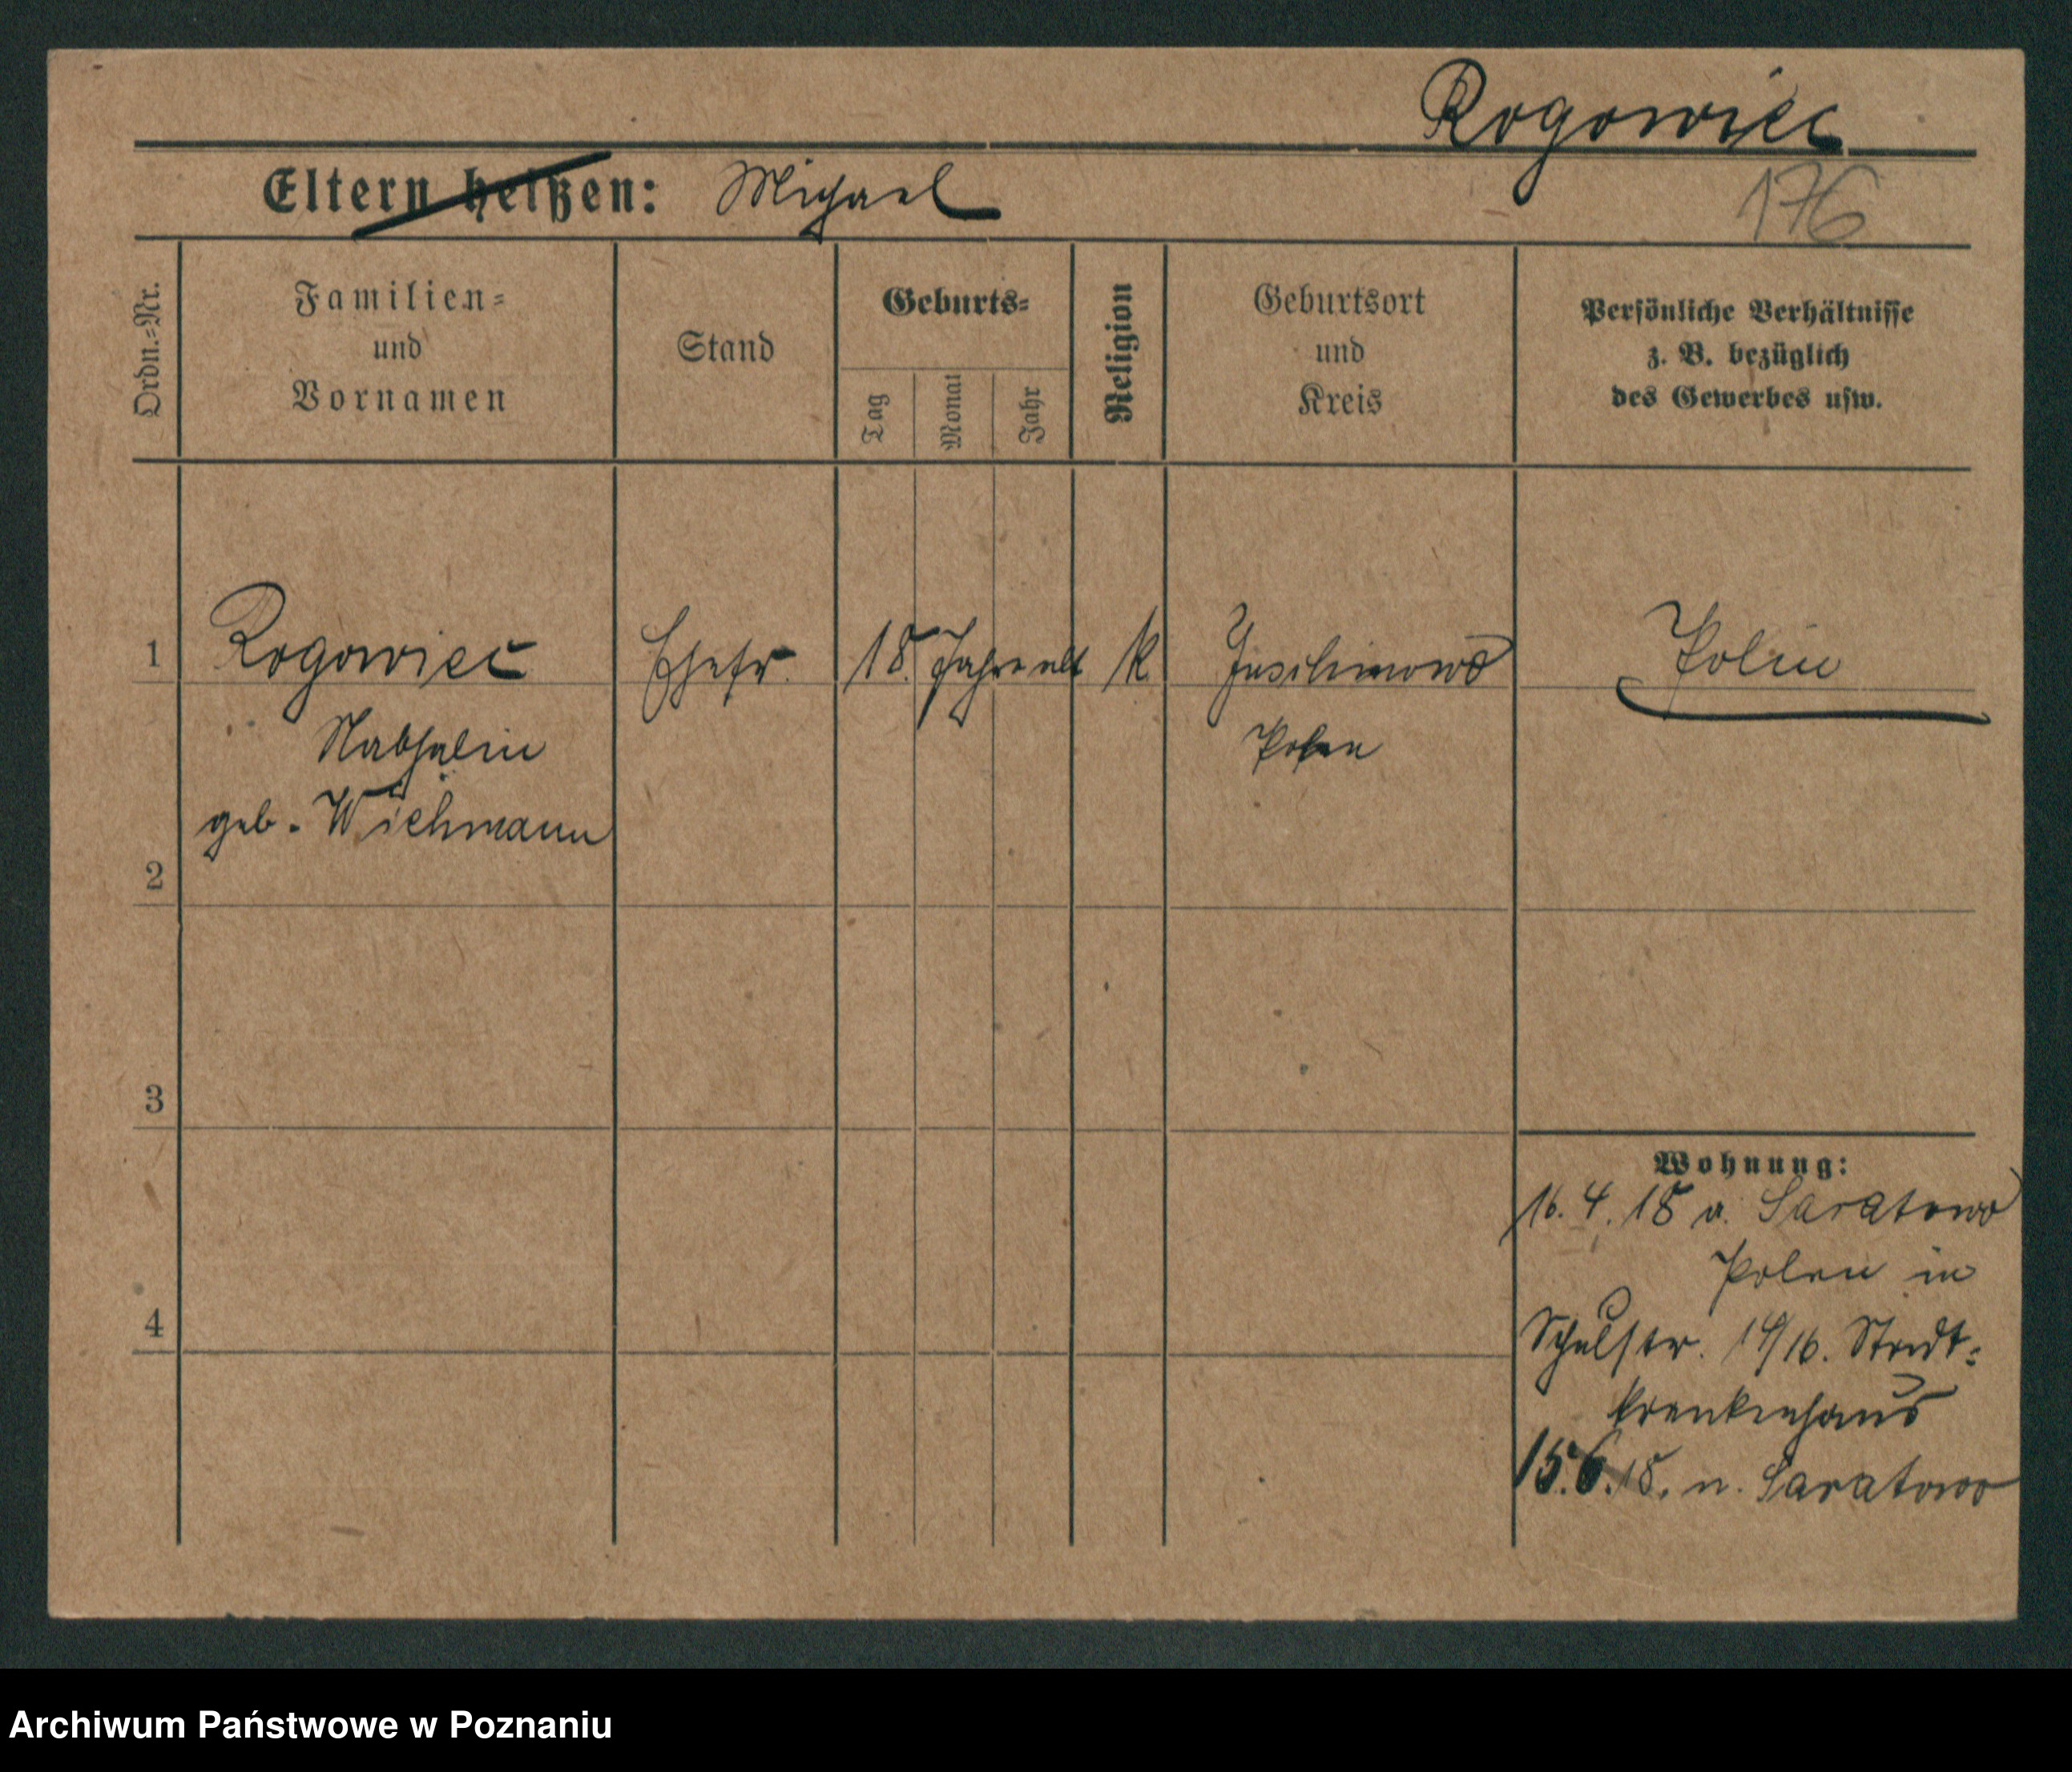 Rogowiec
Eltern heißen: Michael
176
Ordn.=Nr.
Familien=
und
Vornamen
Stand
Geburts=
Tag
Monat
Jahr
Religion
Geburtsort
und
Kreis
Persönliche Verhältnisse
z. B. bezüglich
des Gewerbes usw.
1
Rogowiec
Ehefr.
18 Jahre alt
k
Polin
Polen
geb. Wichmann
2
3
4
Wohnung:
16. 4. 18 v. Saratowo
Polen in
Schulstr. 14/16. Stadt=
krankenhaus
15.6.18. n. Saratowo
Archiwum Państwowe w Poznaniu